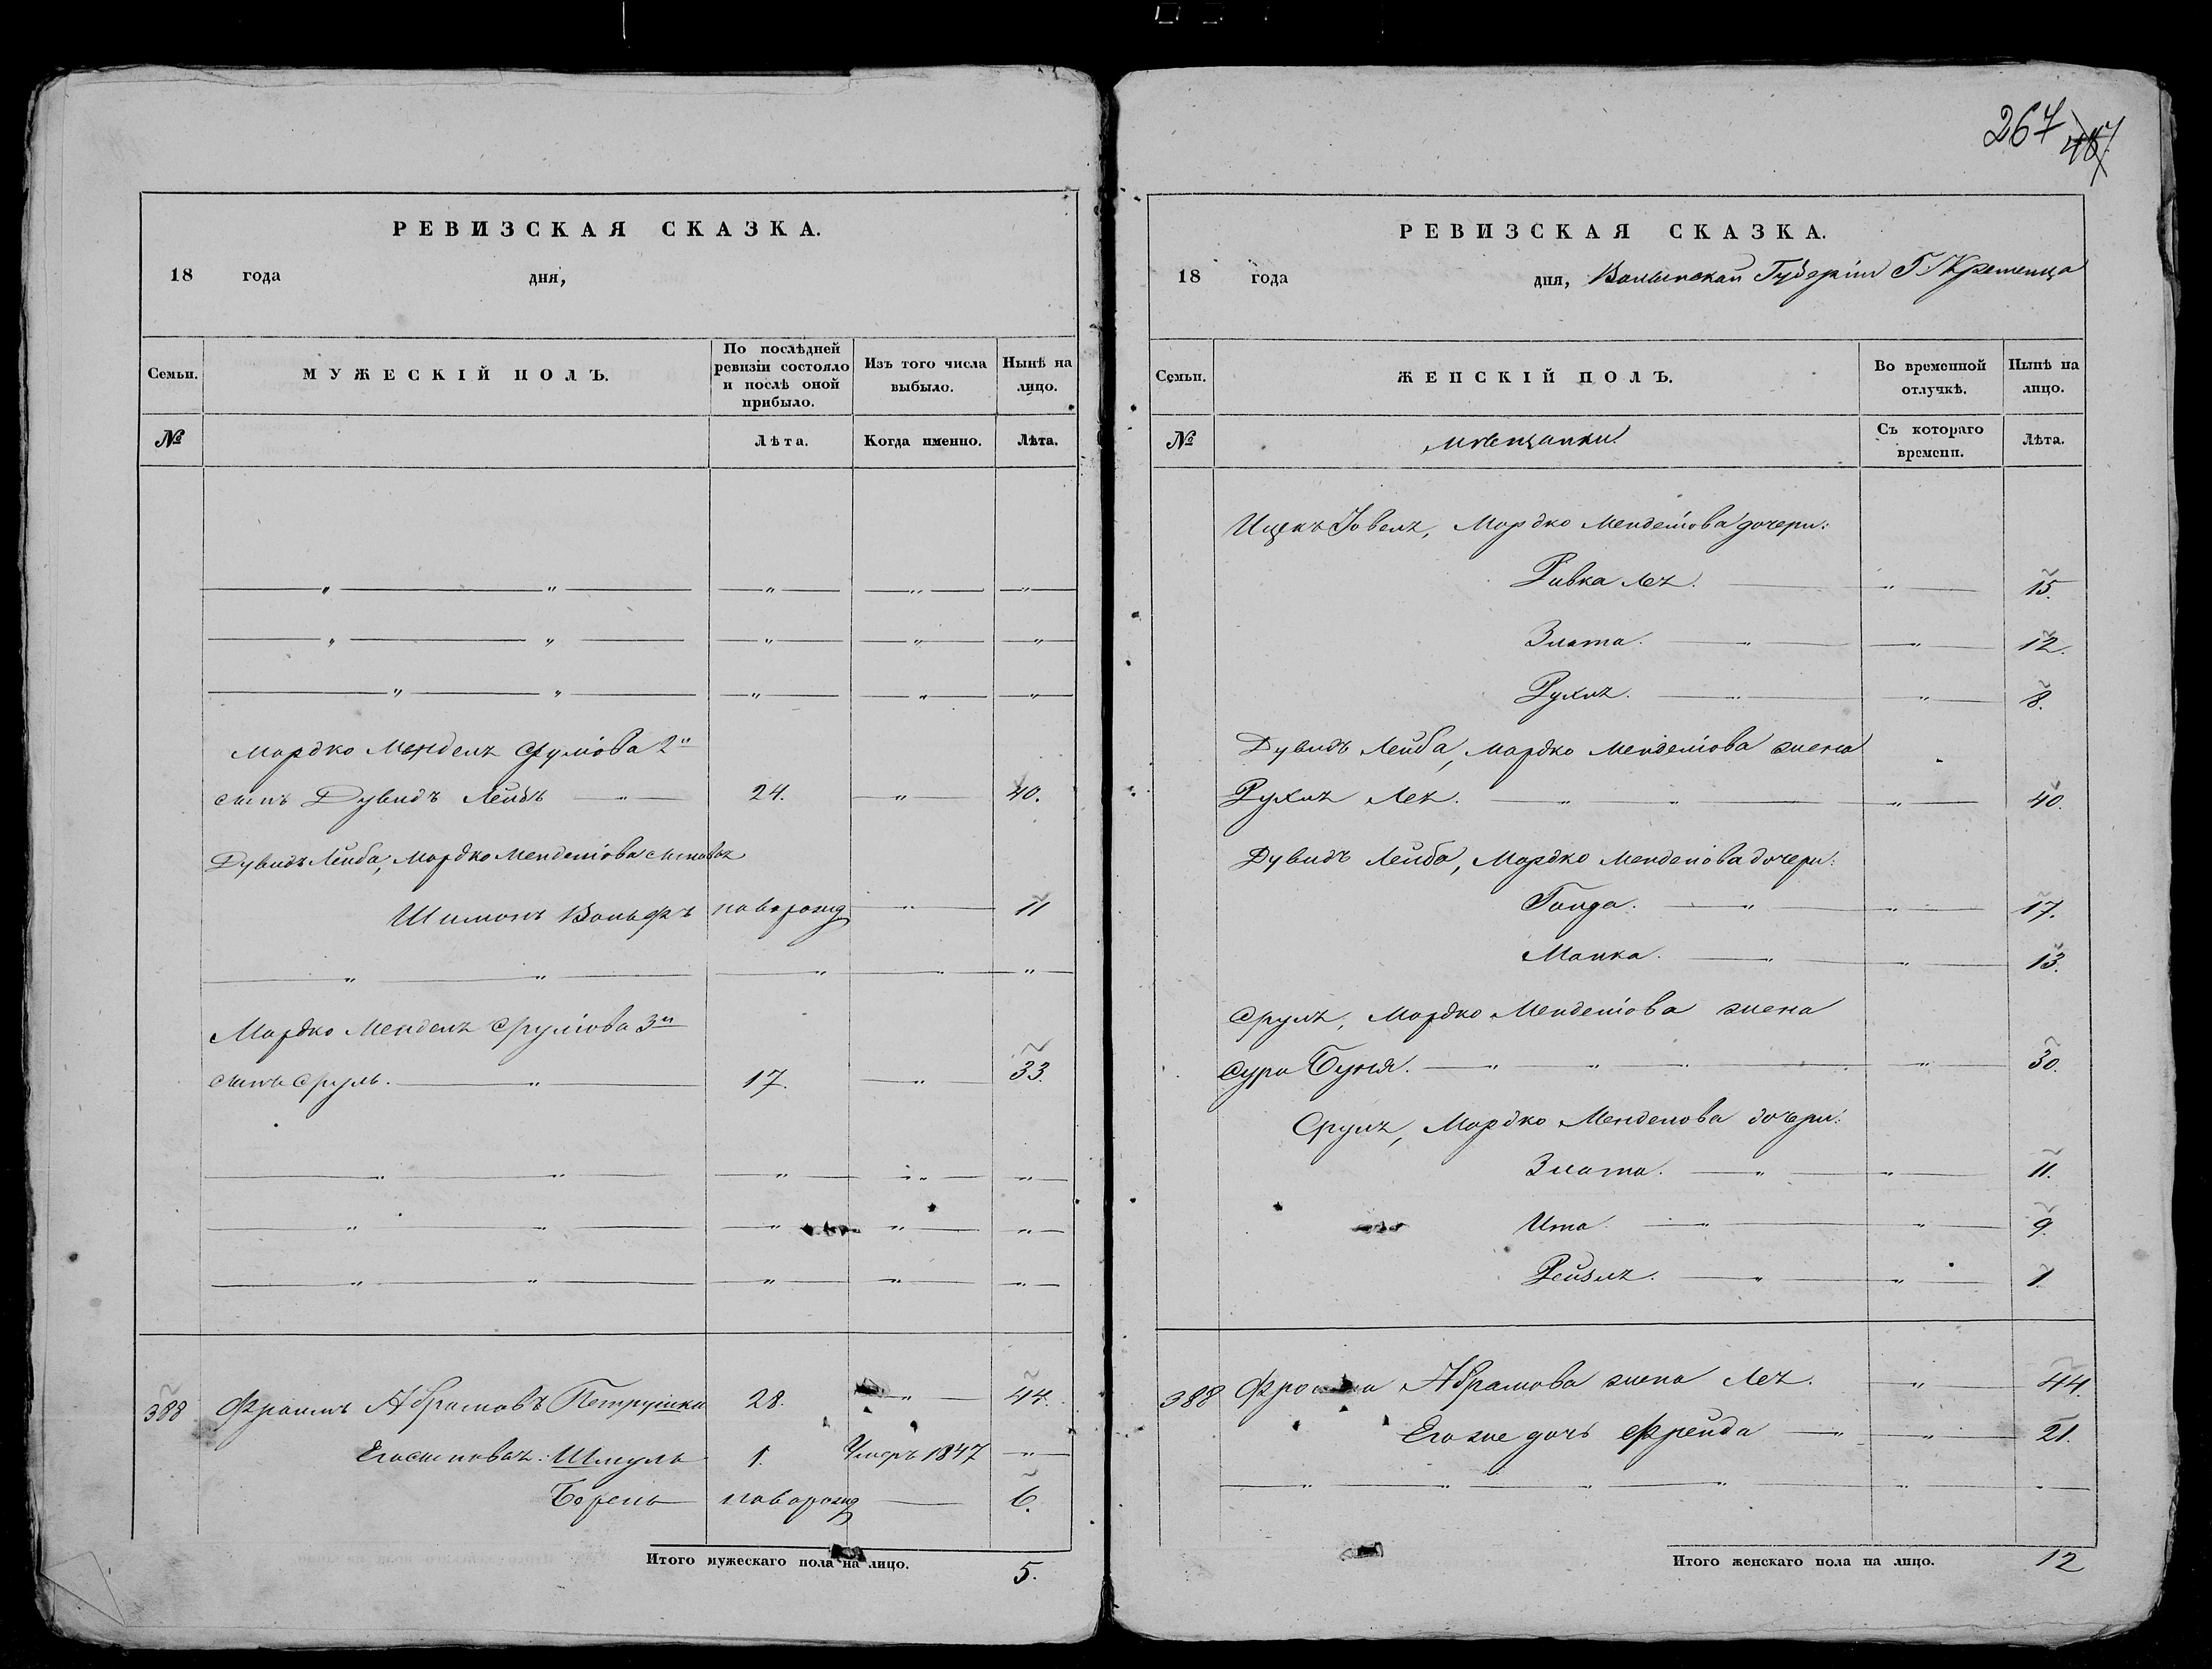 267 487
РЕВИЗСКАЯ СКАЗКА.
18 года дня,
Семьи.
МУЖЕСКІЙ ПОЛЪ.
По послѣдней ревизіи состояло и послѣ оной прибыло.
Изъ того числа выбыло.
Нынѣ на лицо.
№
Лѣта.
Когда именно.
Лѣта.
Мордко Мендель Срулiова 2й
сынъ Дувидъ Лейбъ — " — 24. — " — 40.
Дувидъ Лейба, Мордко Менделiова сыновья
Шимонъ Вольфъ новорожд — " — 11
Мордко Мендель Срулiова 3й
сынъ Сруль. — " — 17. — " — 33.
388 Фроимъ Абрамовъ Петрушка 28. — " — 44.
Его сыновья: Шмуль 1. Умеръ 1847 — " —
Берень новорожд — 6.
Итого мужескаго пола на лицо. 5.
РЕВИЗСКАЯ СКАЗКА.
18 года дня, Волынской Губерніи Г. Кременца
Семьи.
ЖЕНСКІЙ ПОЛЪ.
Во временной отлучкѣ.
Нынѣ на лицо.
№
мѣщанки
Съ котораго времени.
Лѣта.
Ицекъ Іовель, Мордко Менделiова дочери:
Ривка Лея. — " — 15.
Злата. — " — " — 12.
Рухля. — " — " — 8.
Дувидъ Лейба, Мордко Менделiова жена
Рухля Лея. — " — " — " — 40.
Дувидъ Лейба, Мордко Менделiова дочери:
Голда. — " — " — 17.
Малка. — " — " — 13.
Сруля, Мордко Менделiова жена
Сура Буня. — " — " — " — " — 30.
Сруля, Мордко Менделова дочери:
Злата. — " — " — 11.
Ита. — " — " — 9.
Рейзля. — " — " — 1.
388 Фроима Абрамова жена Лея. — " — 44.
Его же дочь Фрейда — " — " — 21.
Итого женскаго пола на лицо. 12